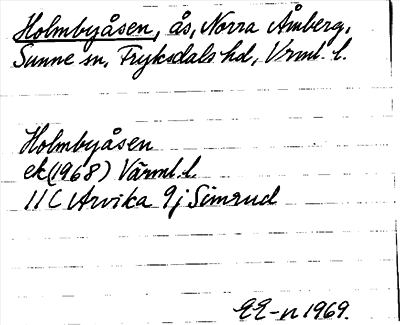 Holmbyåsen, ås, Norra Åmberg,
Sunne sn, Fryksdals hd, Vrml. l.
Holmbyåsen
ek (1968) Värml. l.
11C Arvika 9j Simrud
EE-n 1969.